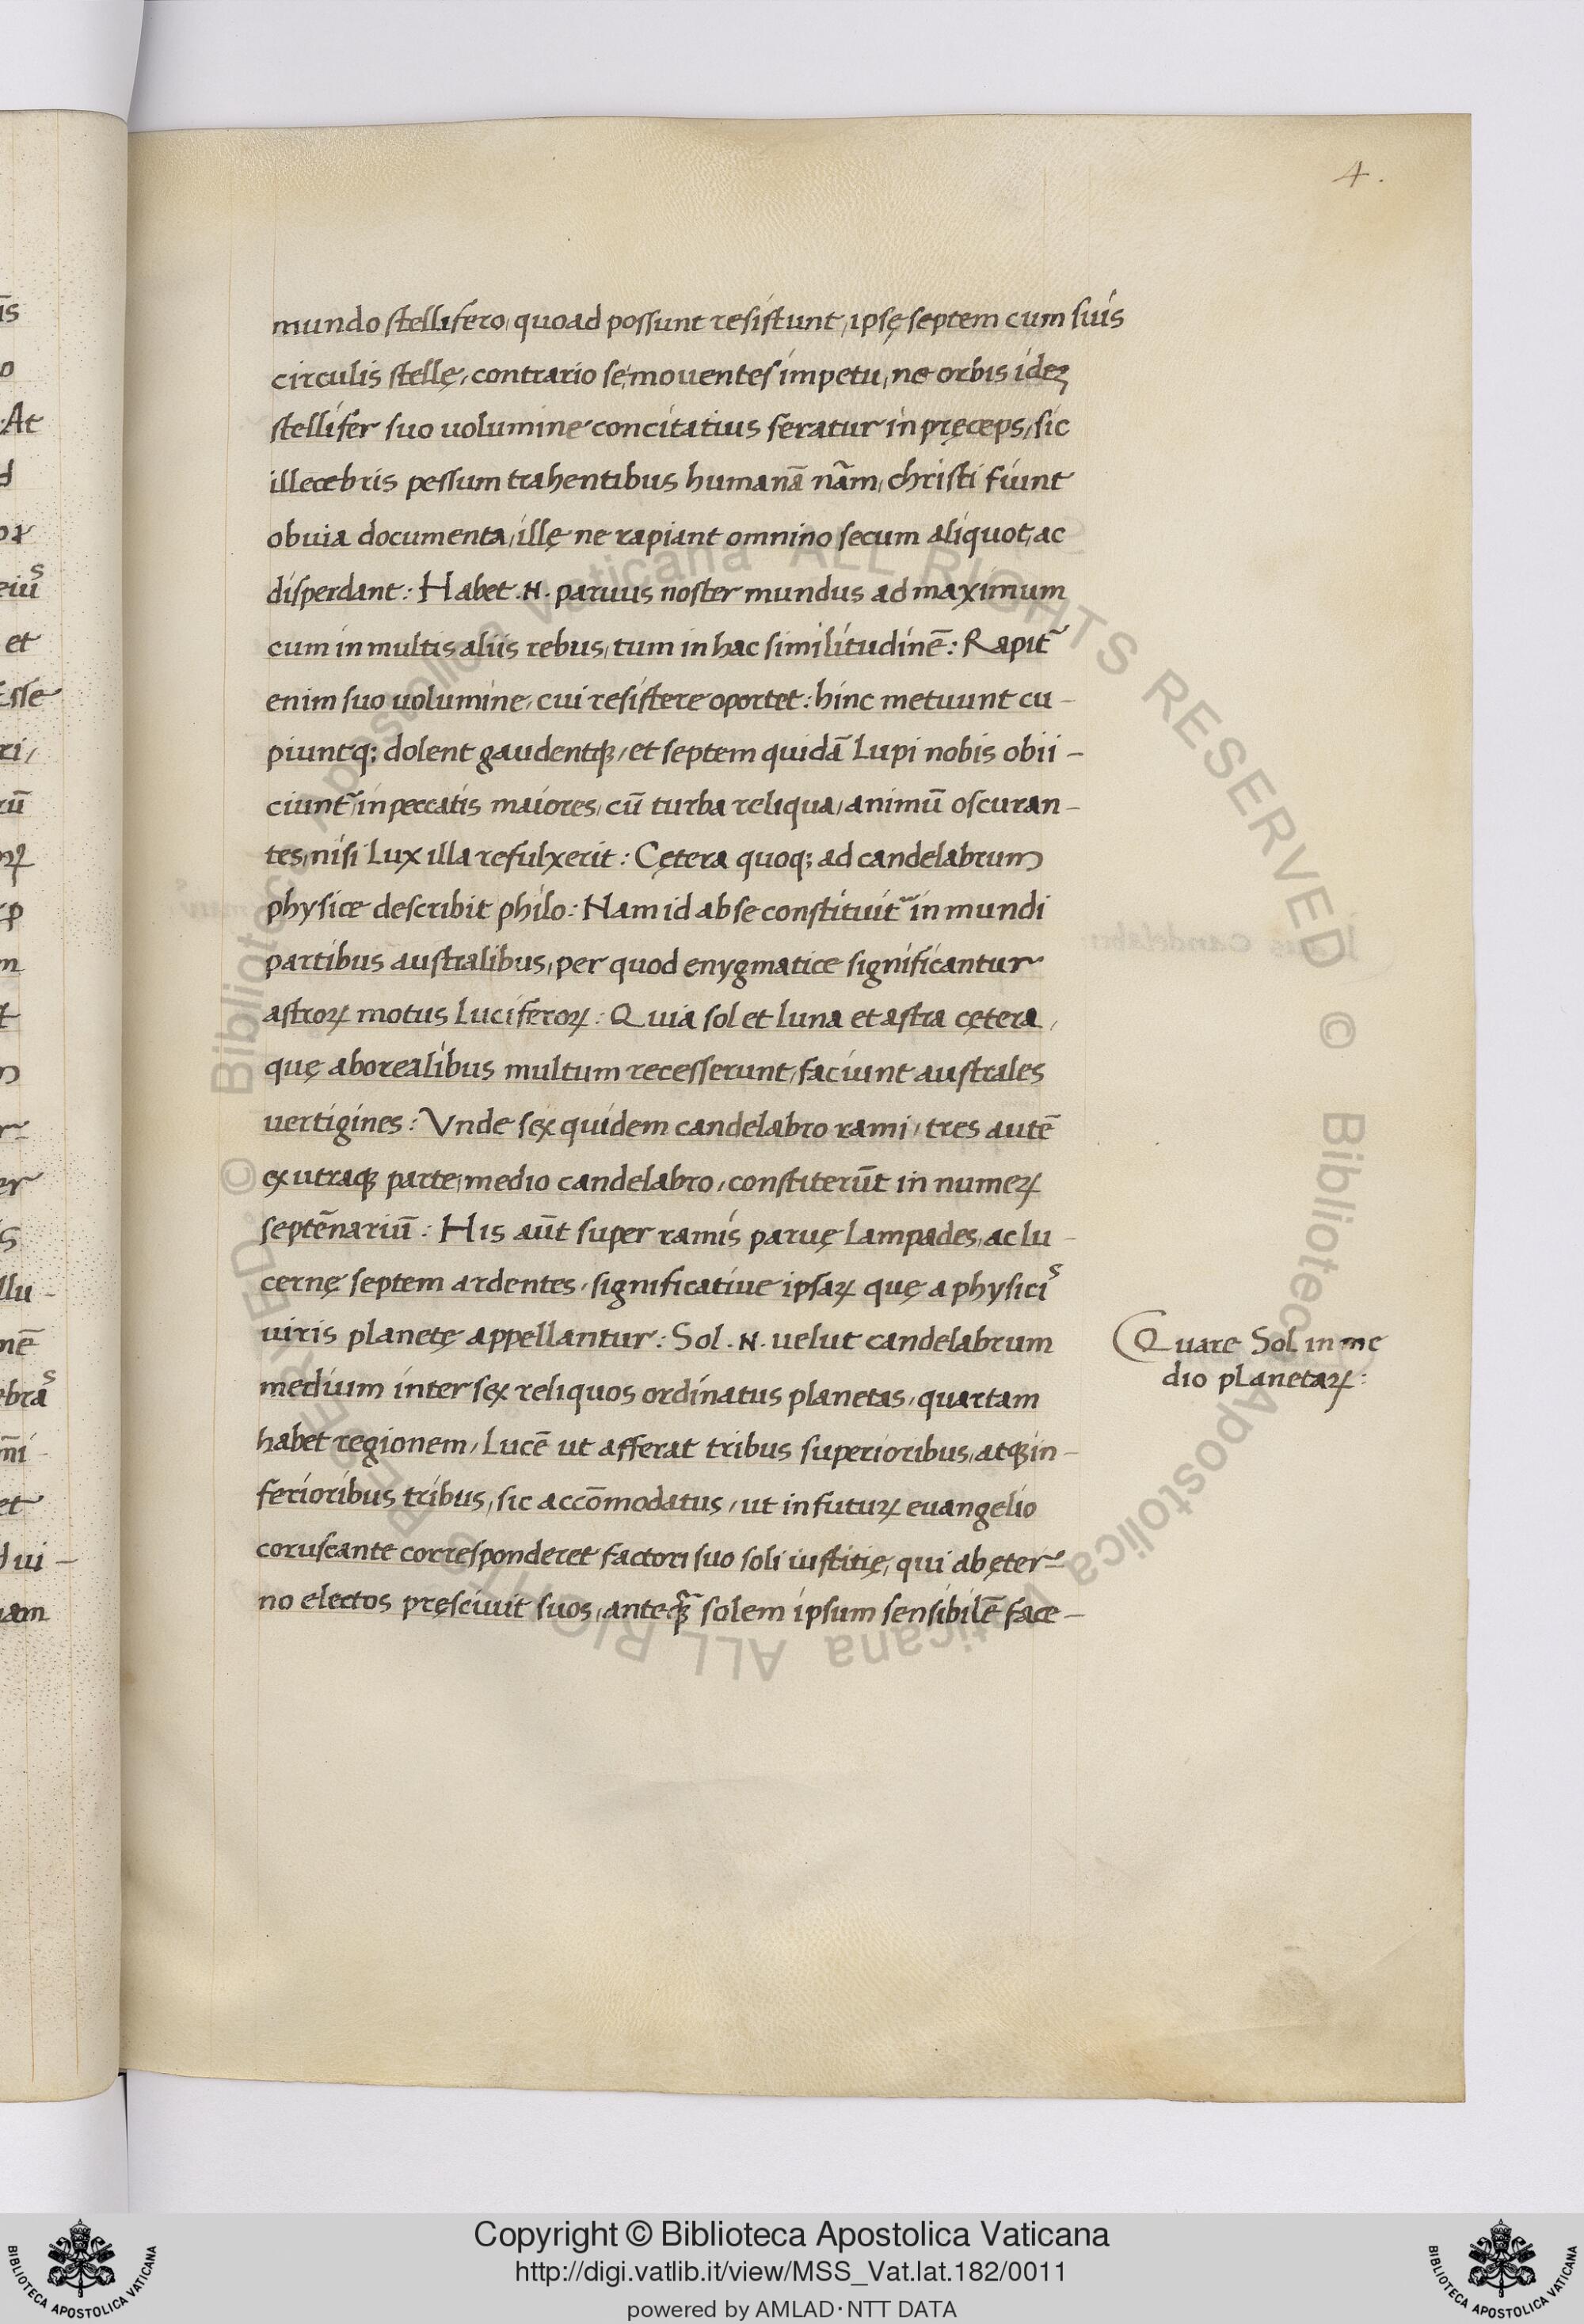 4.
mundo stellifero, quoad possunt resistunt, ipsę septem cum suis
circulis stellę, contrario se mouentes impetu, ne orbis ideꝫ
stellifer suo uolumine concitatius feratur in pręceps, sic
illecebris pessum trahentibus humanā nām, christi fiunt
obuia documenta, illę ne rapiant omnino secum aliquot, ac
disperdant: Habet .N. paruus noster mundus ad maximum
cum in multis aliis rebus, tum in hac similitudinē: Rapit᷑
enim suo uolumine, cui resistere oportet: hinc metuunt cu-
piuntq; dolent gaudentqꝫ, et septem quidā Lupi nobis obii-
ciunt᷑ in peccatis maiores, cū turba reliqua, animū oscuran-
tes, nisi Lux illa refulxerit: Cętera quoq; ad candelabrum
physice describit philo: Nam id ab se constituit᷑ in mundi
partibus australibus, per quod enygmatice significantur
astroꝝ motus Luciferoꝝ: Quia sol et luna et astra cętera,
quę a borealibus multum recesserunt, faciunt australes
uertigines: Vnde sex quidem candelabro rami, tres autē
ex utraqꝫ parte, medio candelabro, constiterūt in numeꝝ
septēnariū: His aūt super ramis paruę Lampades, ac lu-
cernę septem ardentes, significatiue ipsaꝝ quę a physicis
uiris planetę appellantur: Sol .N. uelut candelabrum
medium inter sex reliquos ordinatus planetas, quartam
habet regionem, Lucē ut afferat tribus superioribus, atqꝫ in-
ferioribus tribus, sic accōmodatus, ut in futuꝝ euangelio
coruscante corresponderet factori suo soli iustitię, qui ab ęter-
no electos pręsciuit suos, anteqꝫ̃ solem ipsum sensibilē face-
Quare Sol in me
dio planetaꝝ:
Copyright © Biblioteca Apostolica Vaticana
http://digi.vatlib.it/view/MSS_Vat.lat.182/0011
powered by AMLAD·NTT DATA
BIBLIOTECA APOSTOLICA VATICANA
BIBLIOTECA APOSTOLICA VATICANA
© Biblioteca Apostolica Vaticana ALL RIGHTS RESERVED © Biblioteca Apostolica Vaticana ALL RIGHTS RESERVED